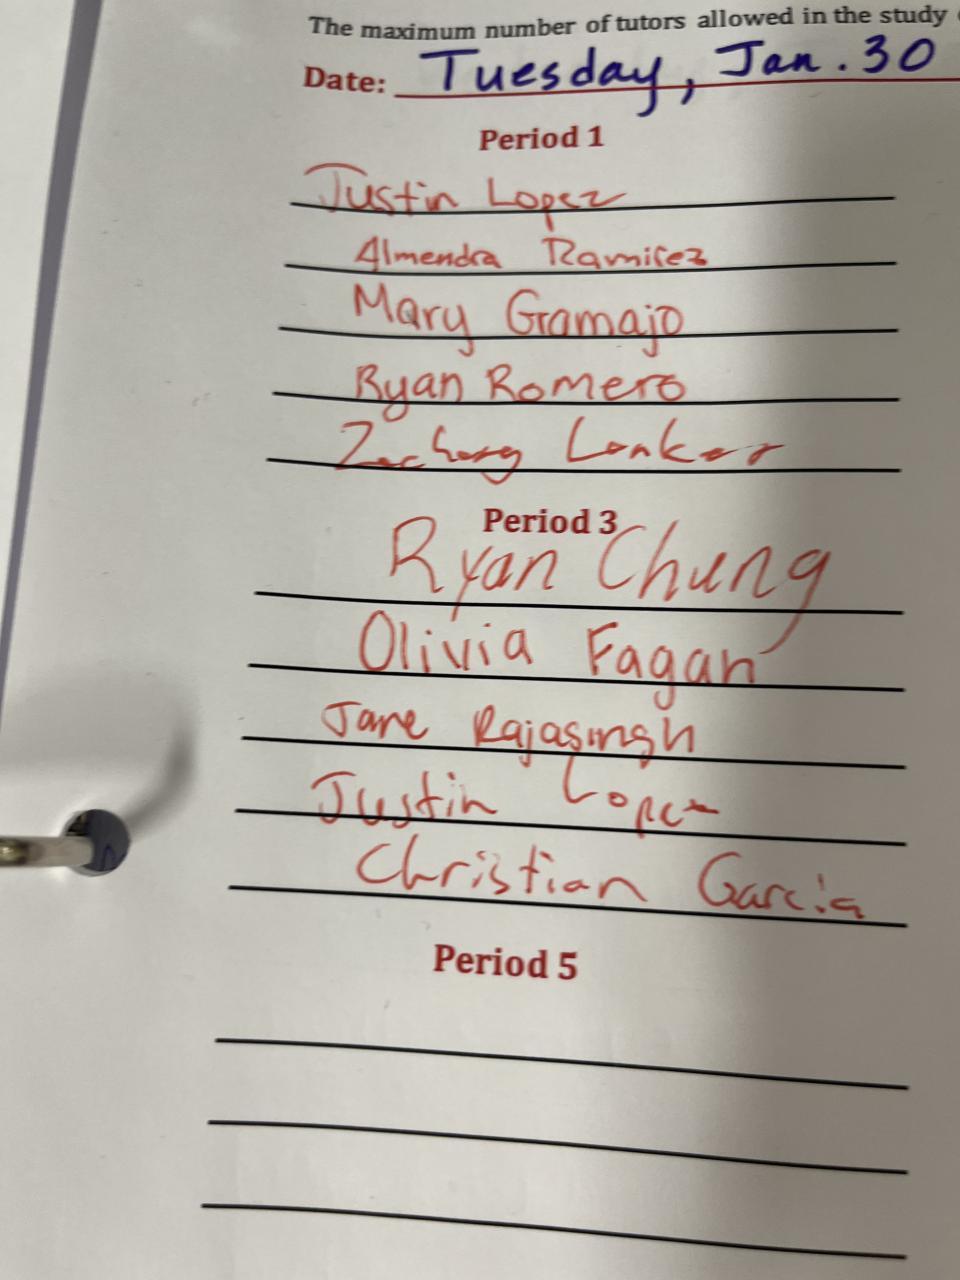 The maximum number of tutors allowed in the study
Date: Tuesday, Jan. 30
Period 1
Justin Lopez
Almendra Ramirez
Mary Gramajo
Ryan Romero
Zachary
Period 3
Ryan Chung
Olivia Fagan
Jane Rajasingh
Justin Lopez
Christian Garcia
Period 5